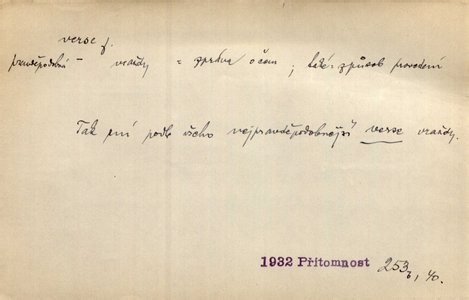 verse f.
pravděpodobná – vraždy = zpráva o čem ; také: způsob provedení
Tak zní podle všeho nejpravděpodobnější verse vraždy.
1932 Přítomnost 253, 40.